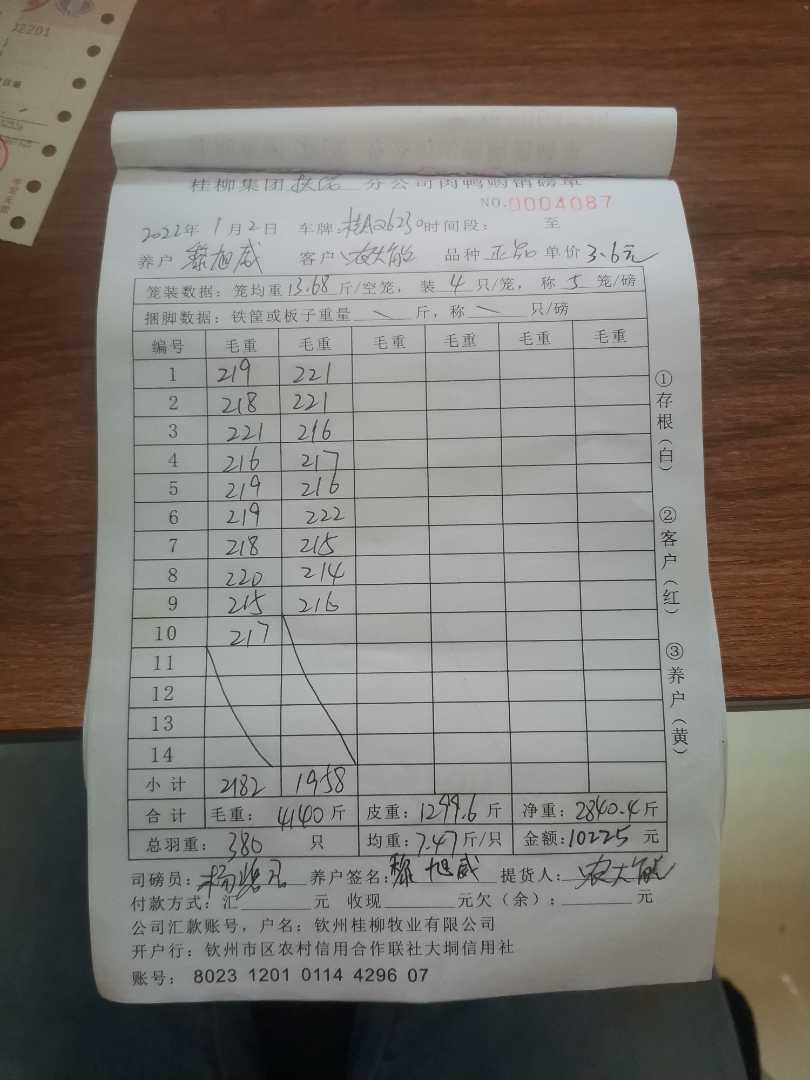 2201
桂柳集团扶绥分公司肉鸭购销磅单
NO.0004087
2022年1月2日 车牌:桂A26230时间段: 至
养户 黎旭威 客户 农大能 品种 正品 单价 3.6元
笼装数据: 笼均重13.68斤/空笼, 装 4 只/笼, 称 5 笼/磅
捆脚数据: 铁筐或板子重量 \ 斤, 称 \ 只/磅
编号 毛重 毛重 毛重 毛重 毛重 毛重
1 219 221
2 218 221
3 221 216
4 216 217
5 219 216
6 219 222
7 218 215
8 220 214
9 215 216
10 217
11
12
13
14
小计 2182 1958
合计 毛重: 4140斤 皮重: 1299.6斤 净重: 2840.4斤
总羽重: 380 只 均重: 7.47斤/只 金额: 10225元
司磅员: 杨 养户签名: 黎旭威 提货人: 农大能
付款方式: 汇 元 收现 元欠(余): 元
公司汇款账号, 户名: 钦州桂柳牧业有限公司
开户行: 钦州市区农村信用合作联社大垌信用社
账号: 8023 1201 0114 4296 07
①存根(白)
②客户(红)
③养户(黄)